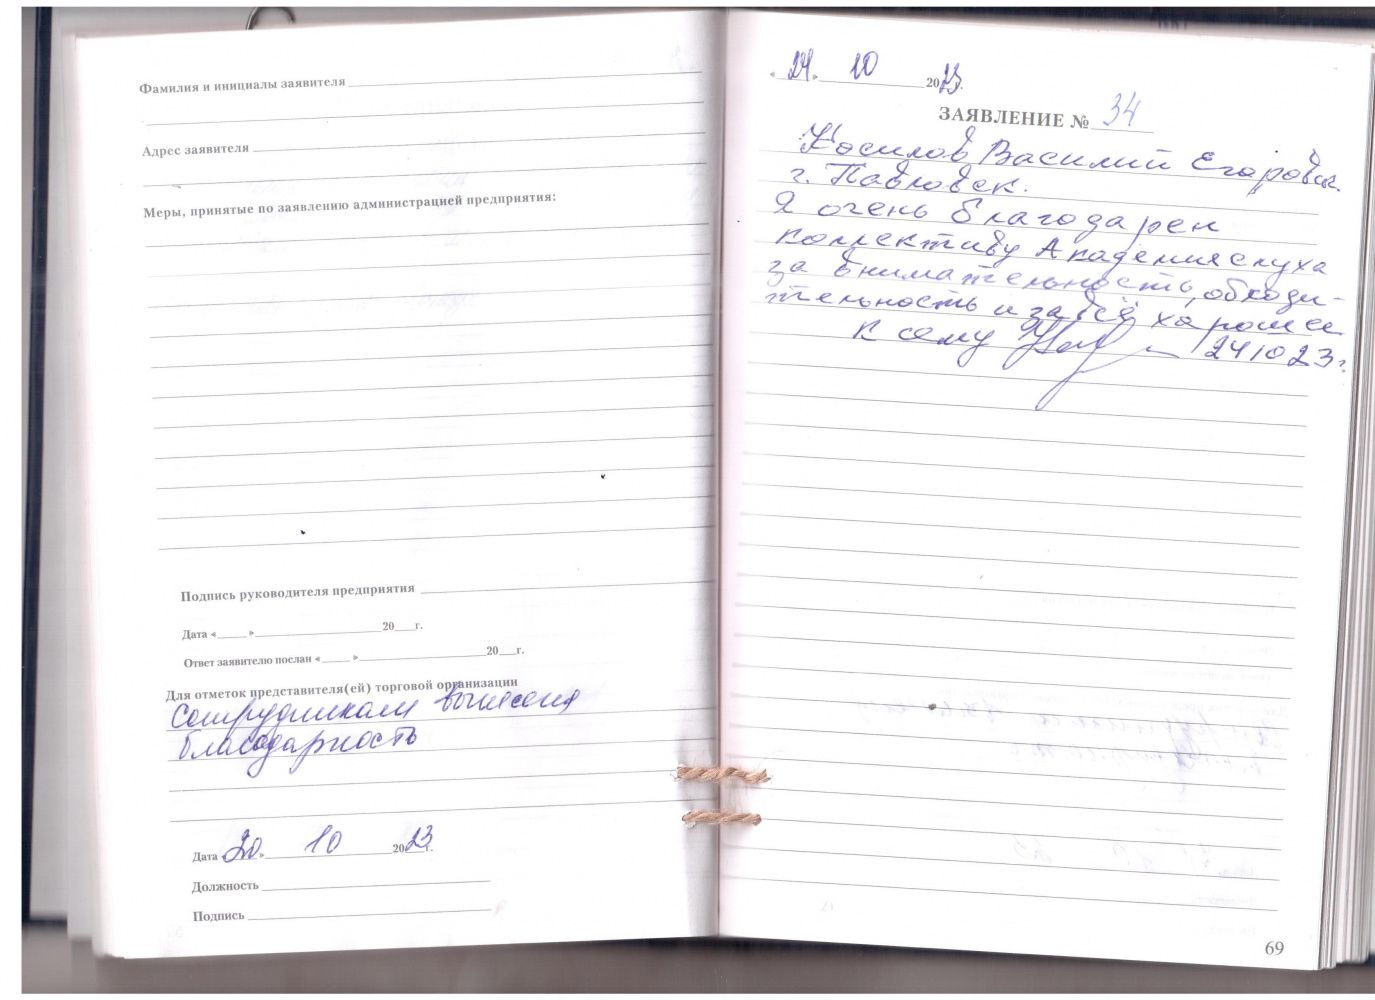 Фамилия и инициалы заявителя
Адрес заявителя
Меры, принятые по заявлению администрацией предприятия:
Подпись руководителя предприятия
Дата « » 20 г.
Ответ заявителю послан « » 20 г.
Для отметок представителя(ей) торговой организации
Сотрудникам вынесена
благодарность
Дата «20» 10 2023 г.
Должность
Подпись
«24» 10 2023 г.
ЗАЯВЛЕНИЕ № 34
Носилов Василий Егорович.
г. Павловск.
Я очень благодарен
коллективу Академия слуха
за внимательность, обходи-
тельность и за всё хорошее
к сему 24 10 23 г.
69